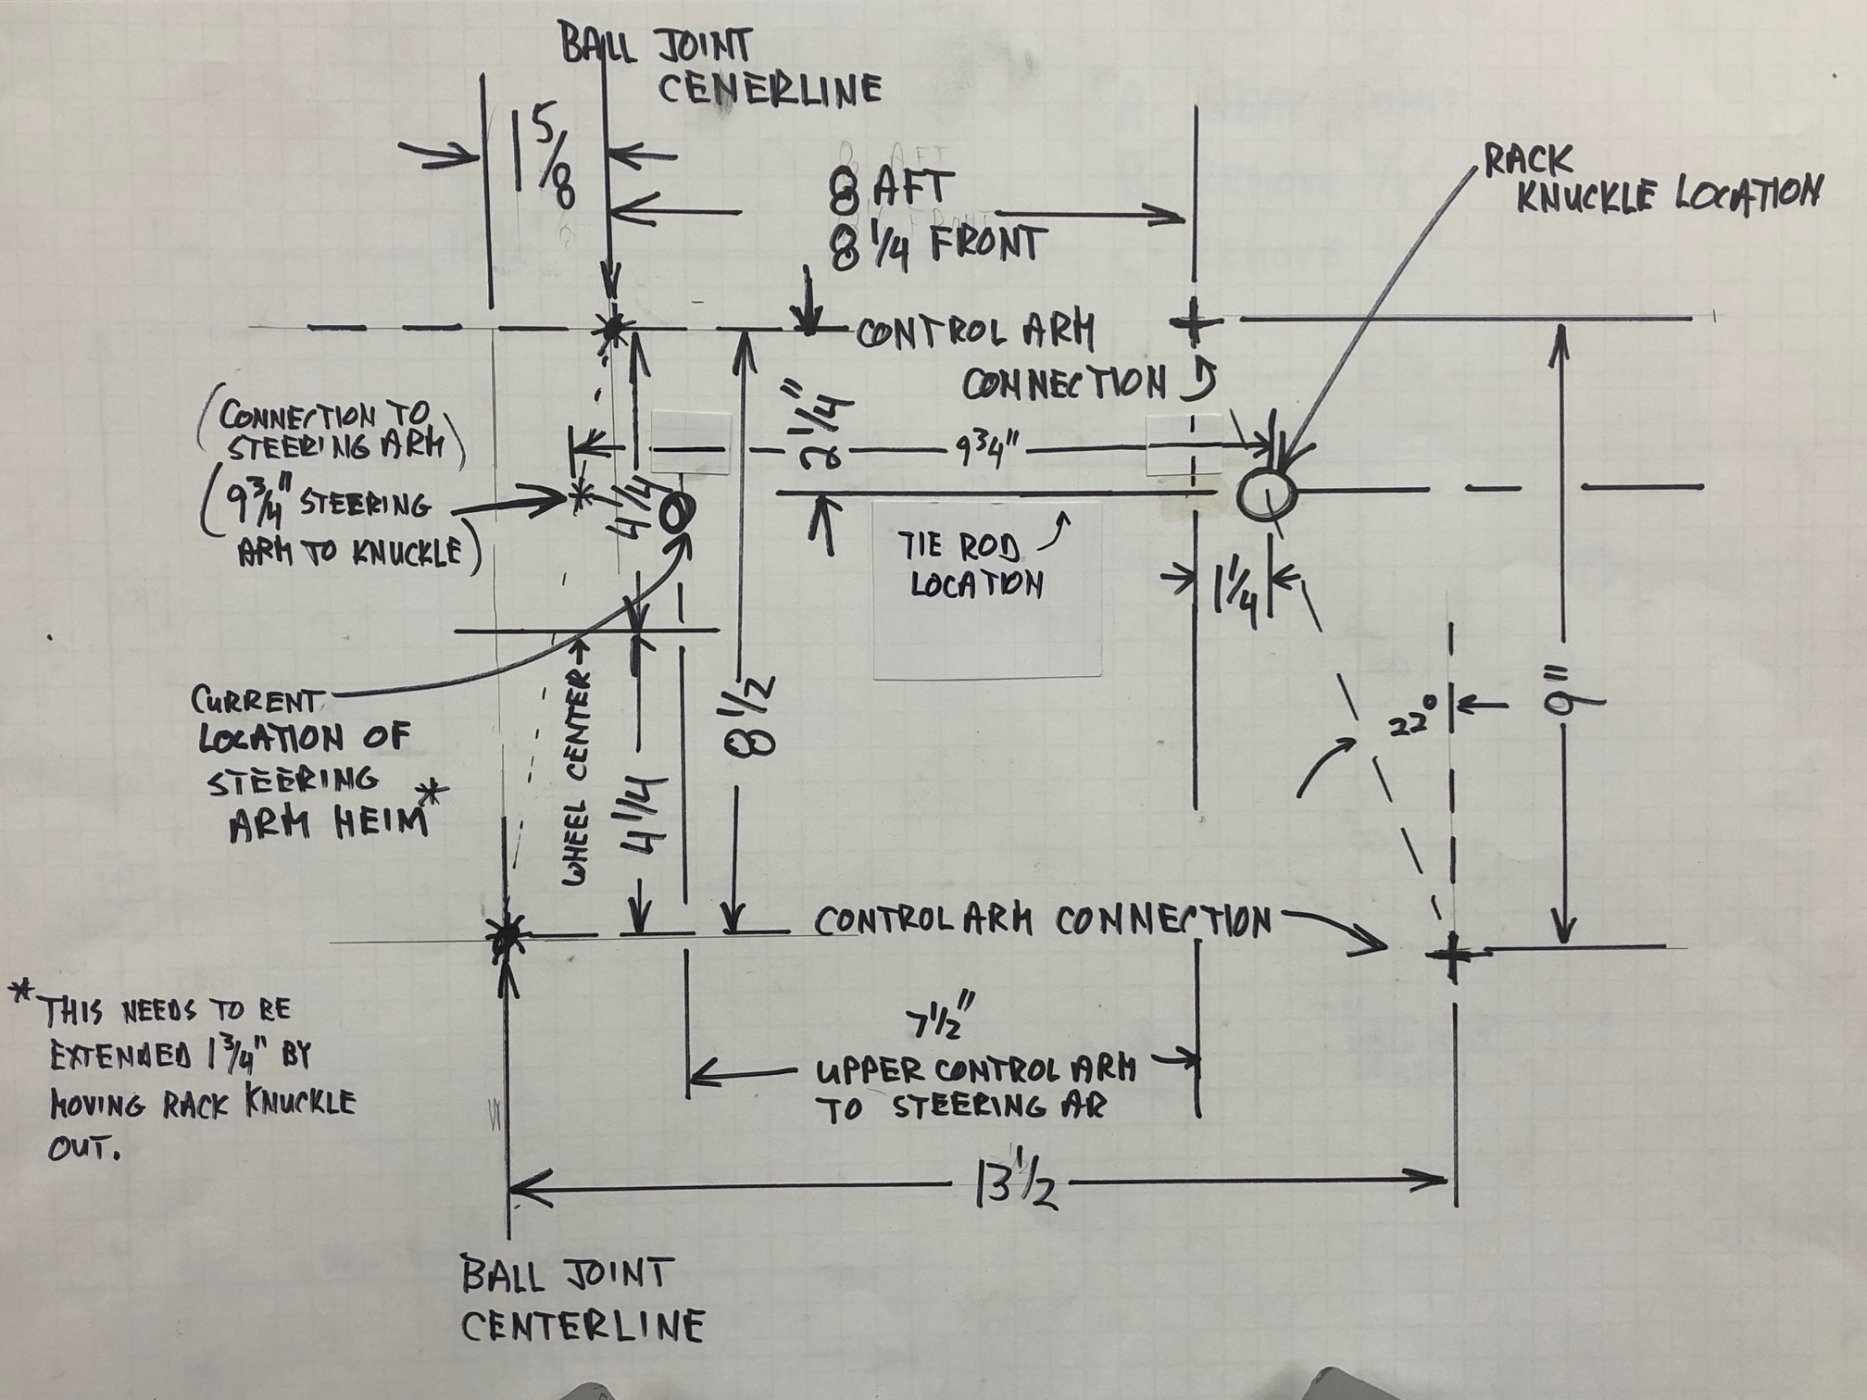 BALL JOINT
CENERLINE
1 5/8
8 AFT
8 1/4 FRONT
RACK
KNUCKLE LOCATION
CONTROL ARM
CONNECTION
(CONNECTION TO
STEERING ARM)
(9 3/4" STEERING
ARM TO KNUCKLE)
2 1/4"
9 3/4"
4 1/4
TIE ROD
LOCATION
1 1/4
CURRENT
LOCATION OF
STEERING
ARM HEIM*
WHEEL CENTER
4 1/4
8 1/2
22°
9"
CONTROL ARM CONNECTION
*THIS NEEDS TO BE
EXTENDED 1 3/4" BY
MOVING RACK KNUCKLE
OUT.
7 1/2"
UPPER CONTROL ARM
TO STEERING AR
13 1/2
BALL JOINT
CENTERLINE